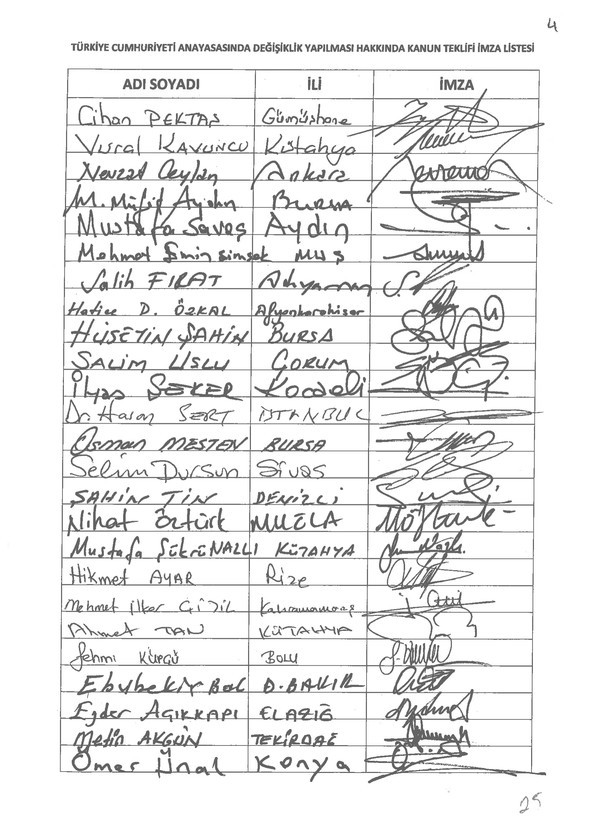 4
TÜRKİYE CUMHURİYETİ ANAYASASINDA DEĞİŞİKLİK YAPILMASI HAKKINDA KANUN TEKLİFİ İMZA LİSTESİ
ADI SOYADI İLİ İMZA
Cihan PEKTAŞ Gümüşhane
Vural KAVUNCU Kütahya
Nevzat Ceylan Ankara
M. Müfit Aydın BURSA
Mustafa Savaş Aydın
Mehmet Emin Şimşek MUŞ
Salih FIRAT Adıyaman
Hatice D. ÖZKAL Afyonkarahisar
HÜSEYİN ŞAHİN BURSA
SALİM USLU ÇORUM
İlyas ŞEKER Kocaeli
Dr. Hasan SERT İSTANBUL
Osman MESTEN BURSA
Selim Dursun Sivas
ŞAHİN TİN DENİZLİ
Nihat Öztürk MUĞLA
Mustafa Şükrü NALLI KÜTAHYA
Hikmet AYAR Rize
Mehmet İlker Çitil Kahramanmaraş
Ahmet TAN KÜTAHYA
Fehmi KÜPÇÜ BOLU
Ebubekir Bal D.BAKIR
Ejder AÇIKKAPI ELAZIĞ
Metin AKGÜN TEKİRDAĞ
Ömer Ünal Konya
25